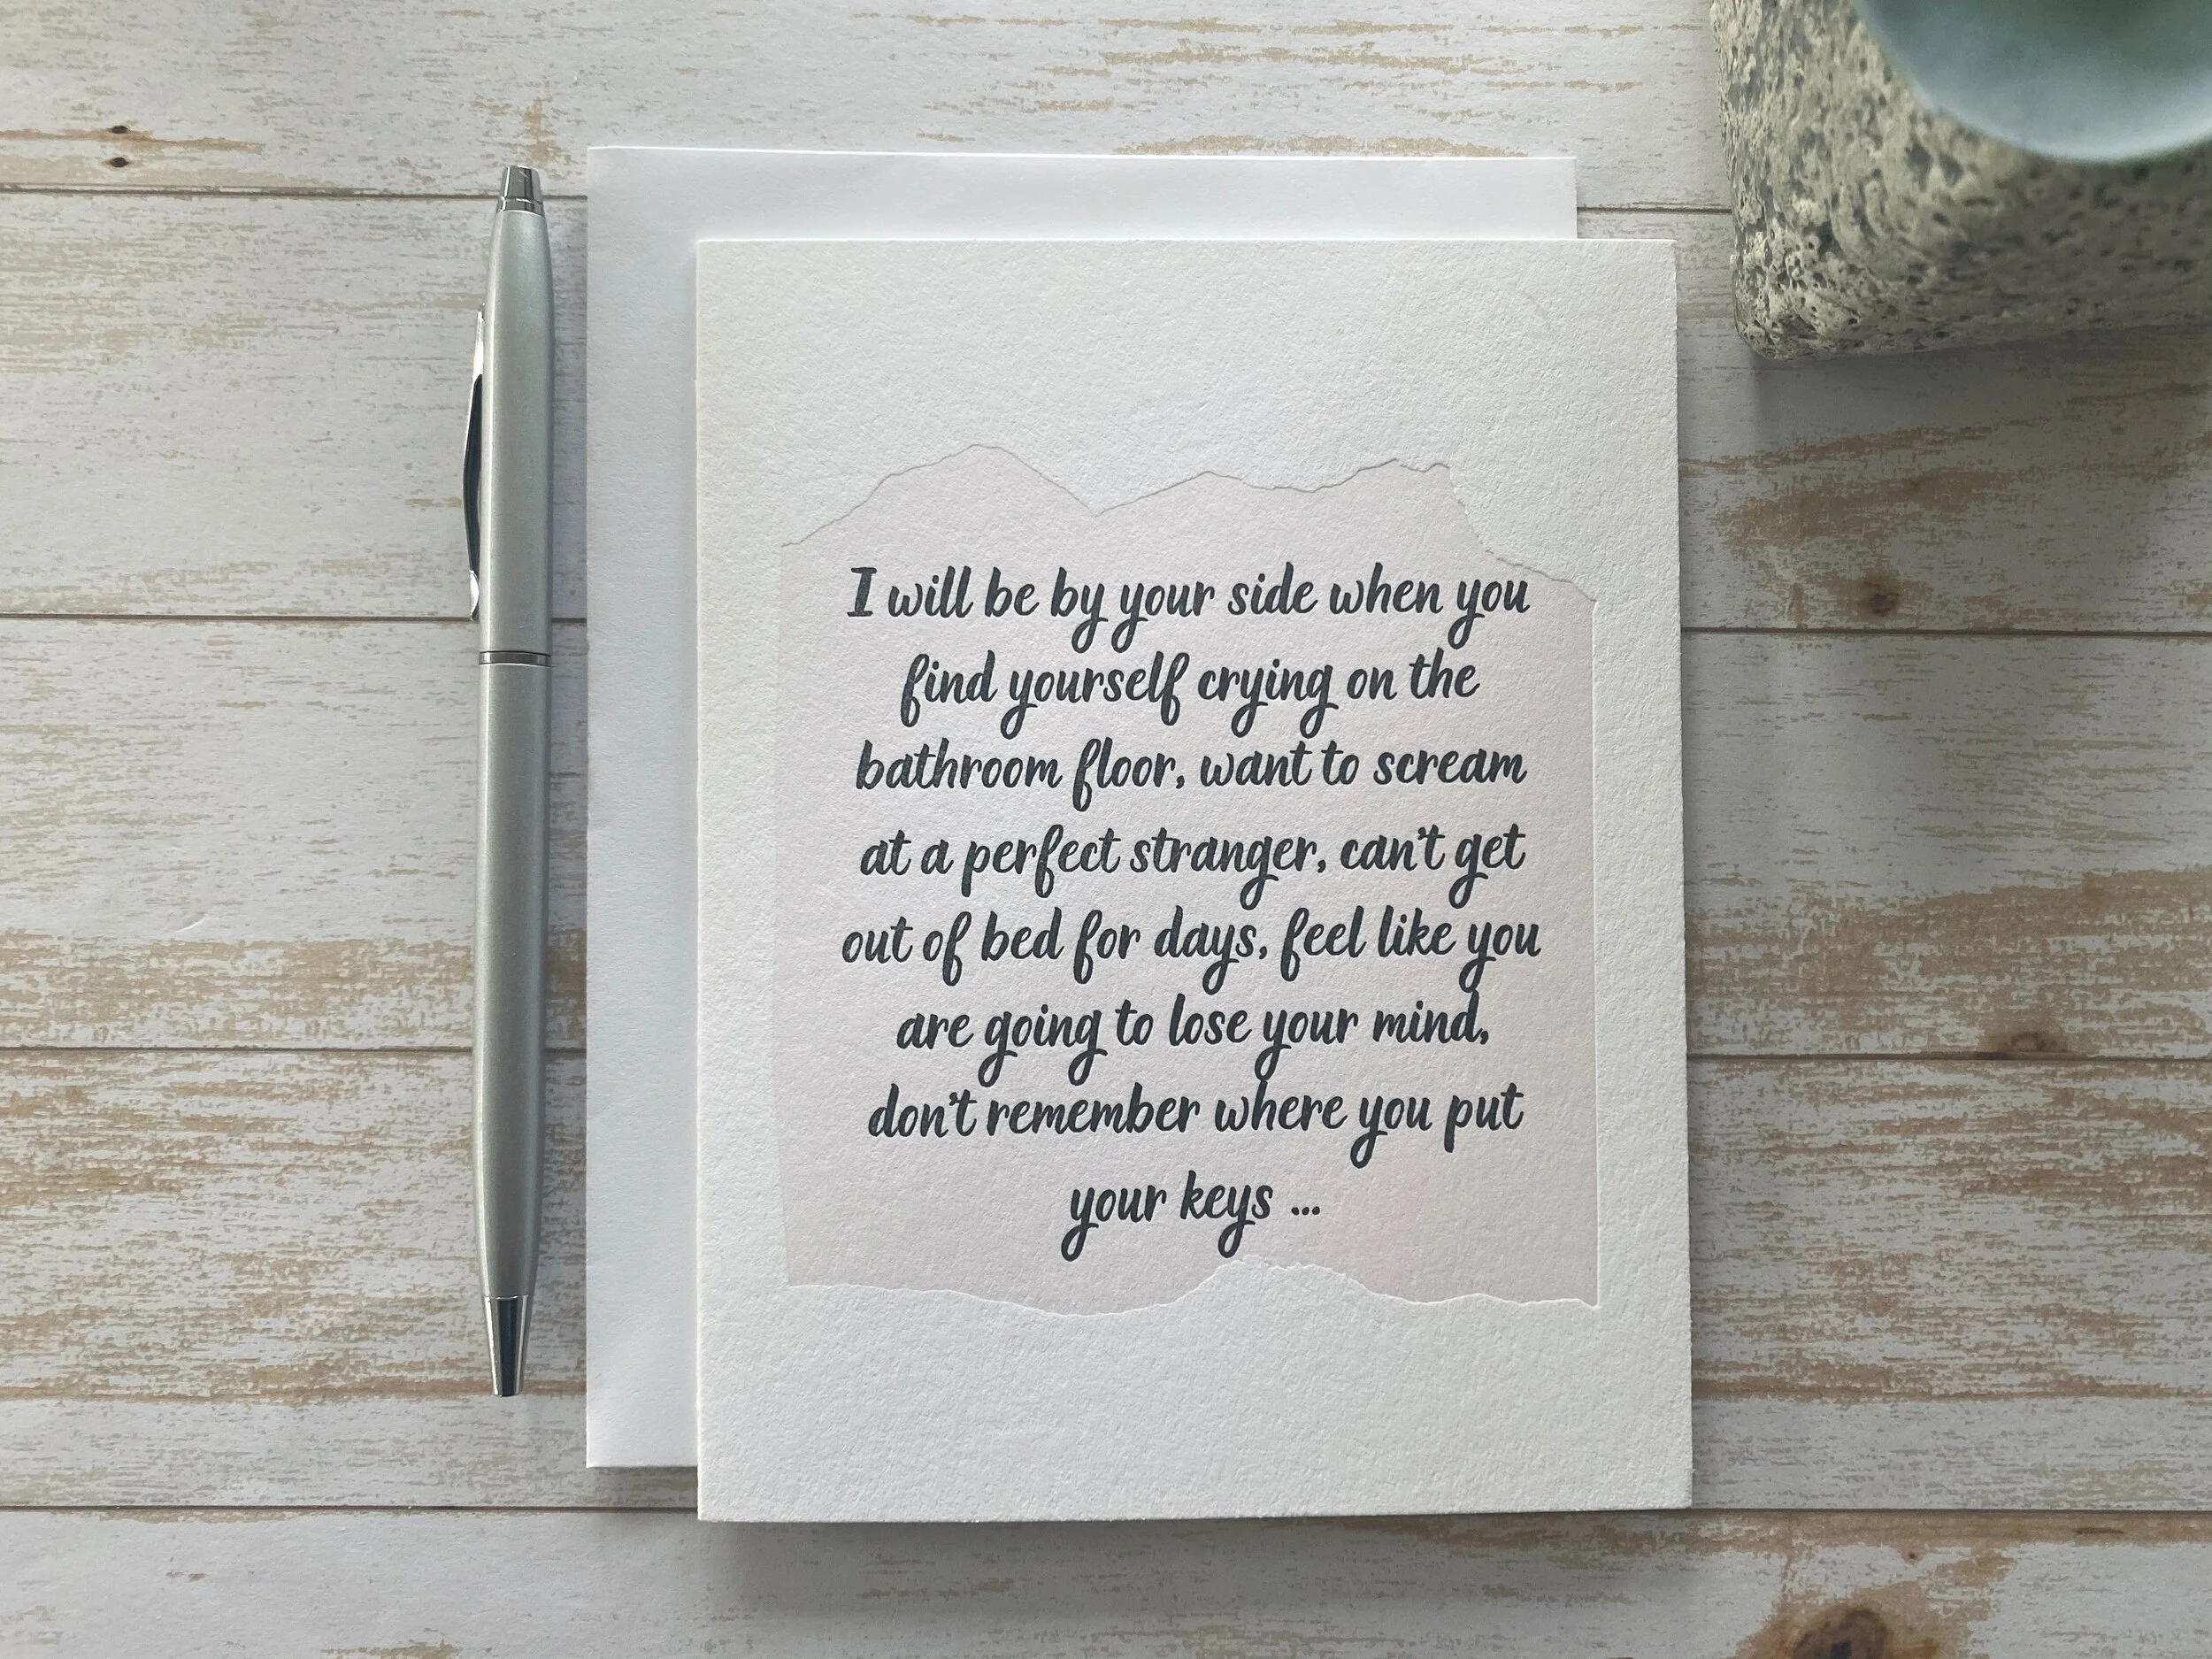 I will be by your side when you
find yourself crying on the
bathroom floor, want to scream
at a perfect stranger, can't get
out of bed for days, feel like you
are going to lose your mind,
don't remember where you put
your keys ...